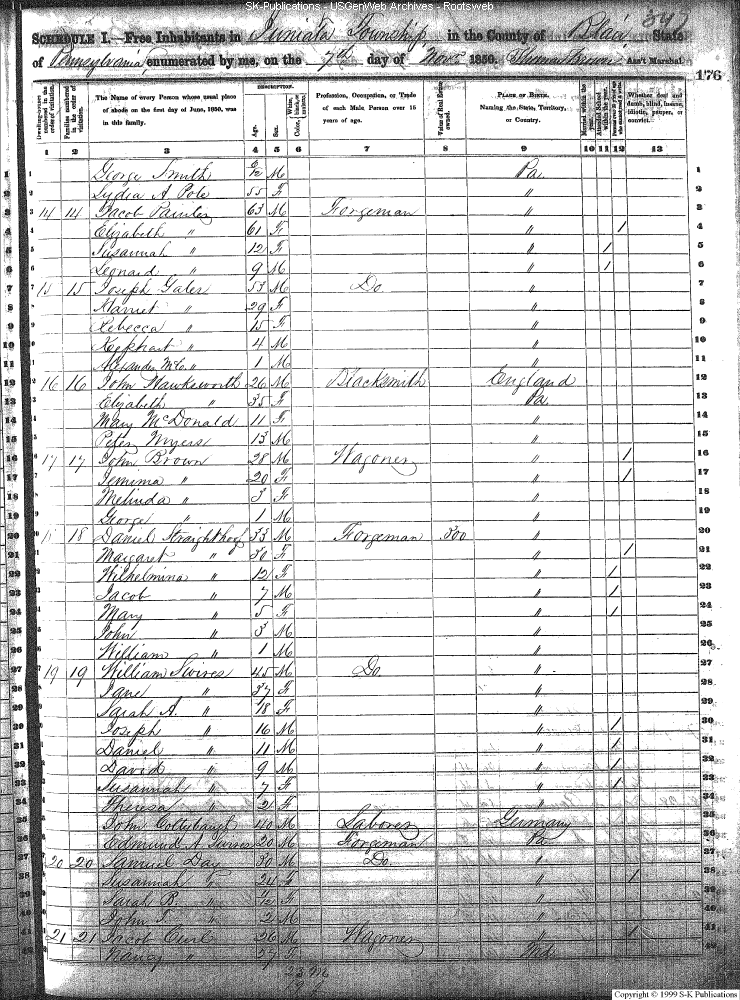 SK-Publications - USGenWeb Archives - Rootsweb
347
SCHEDULE I.—Free Inhabitants in Juniata Township in the County of Blair State
of Pennsylvania, enumerated by me, on the 7th day of Novr 1850. Thomas Ass't Marshal.
176
Dwelling-houses numbered in the order of visitation.
Families numbered in the order of visitation.
The Name of every Person whose usual place of abode on the first day of June, 1850, was in this family.
DESCRIPTION.
Age.
Sex.
White, black, or mulatto.
Color,
Profession, Occupation, or Trade of each Male Person over 15 years of age.
Value of Real Estate owned.
PLACE OF BIRTH.
Naming the State, Territory, or Country.
Married within the year.
Attended School within the year.
Whether deaf and dumb, blind, insane, idiotic, pauper, or convict.
1 2 3 4 5 6 7 8 9 10 11 12 13
1 George Smith 6/12 M Pa 1
2 Lydia A Pole 55 F " 2
3 14 14 Jacob Painter 63 M Forgeman " 3
4 Elizabeth " 61 F " / 4
5 Susannah " 12 F " / 5
6 Leonard " 9 M " / 6
7 15 15 Joseph Gates 57 M Do. " 7
8 Harriet " 29 F " 8
9 Rebecca " 15 F " 9
10 Kephart " 4 M " 10
11 Alexander McC. " 1 M " 11
12 16 16 John Hawkesworth 26 M Blacksmith England 12
13 Elizabeth " 35 F Pa 13
14 Mary McDonald 11 F " 14
15 Peter Myers 13 M " 15
16 17 17 John Brown 28 M Wagoner " / 16
17 Jemima " 20 F " / 17
18 Melinda " 3 F " 18
19 George " 1 M " 19
20 18 18 Daniel Straighthoof 33 M Forgeman 300 " 20
21 Margaret " 30 F " / 21
22 Wilhelmina " 12 F " / 22
23 Jacob " 7 M " / 23
24 Mary " 5 F " / 24
25 John " 3 M " 25
26 William " 1 M " 26
27 19 19 William Swires 45 M Do. " 27
28 Jane " 37 F " 28
29 Sarah A. " 18 F " 29
30 Joseph " 16 M " / 30
31 Daniel " 11 M " / 31
32 David " 9 M " / 32
33 Susannah " 7 F " / 33
34 Theresa " 2 F " 34
35 John Collybaugh 40 M Laborer Germany 35
36 Edmund A Swires 20 M Forgeman Pa 36
37 20 20 Samuel Day 30 M Do. " 37
38 Susannah " 24 F " / 38
39 Sarah B. " F " 39
40 John T. " 2 M " 40
41 21 21 Jacob Curl 26 M Wagoner " / 41
42 Nancy " 27 F Md 42
23 M
Copyright © 1999 S-K Publications